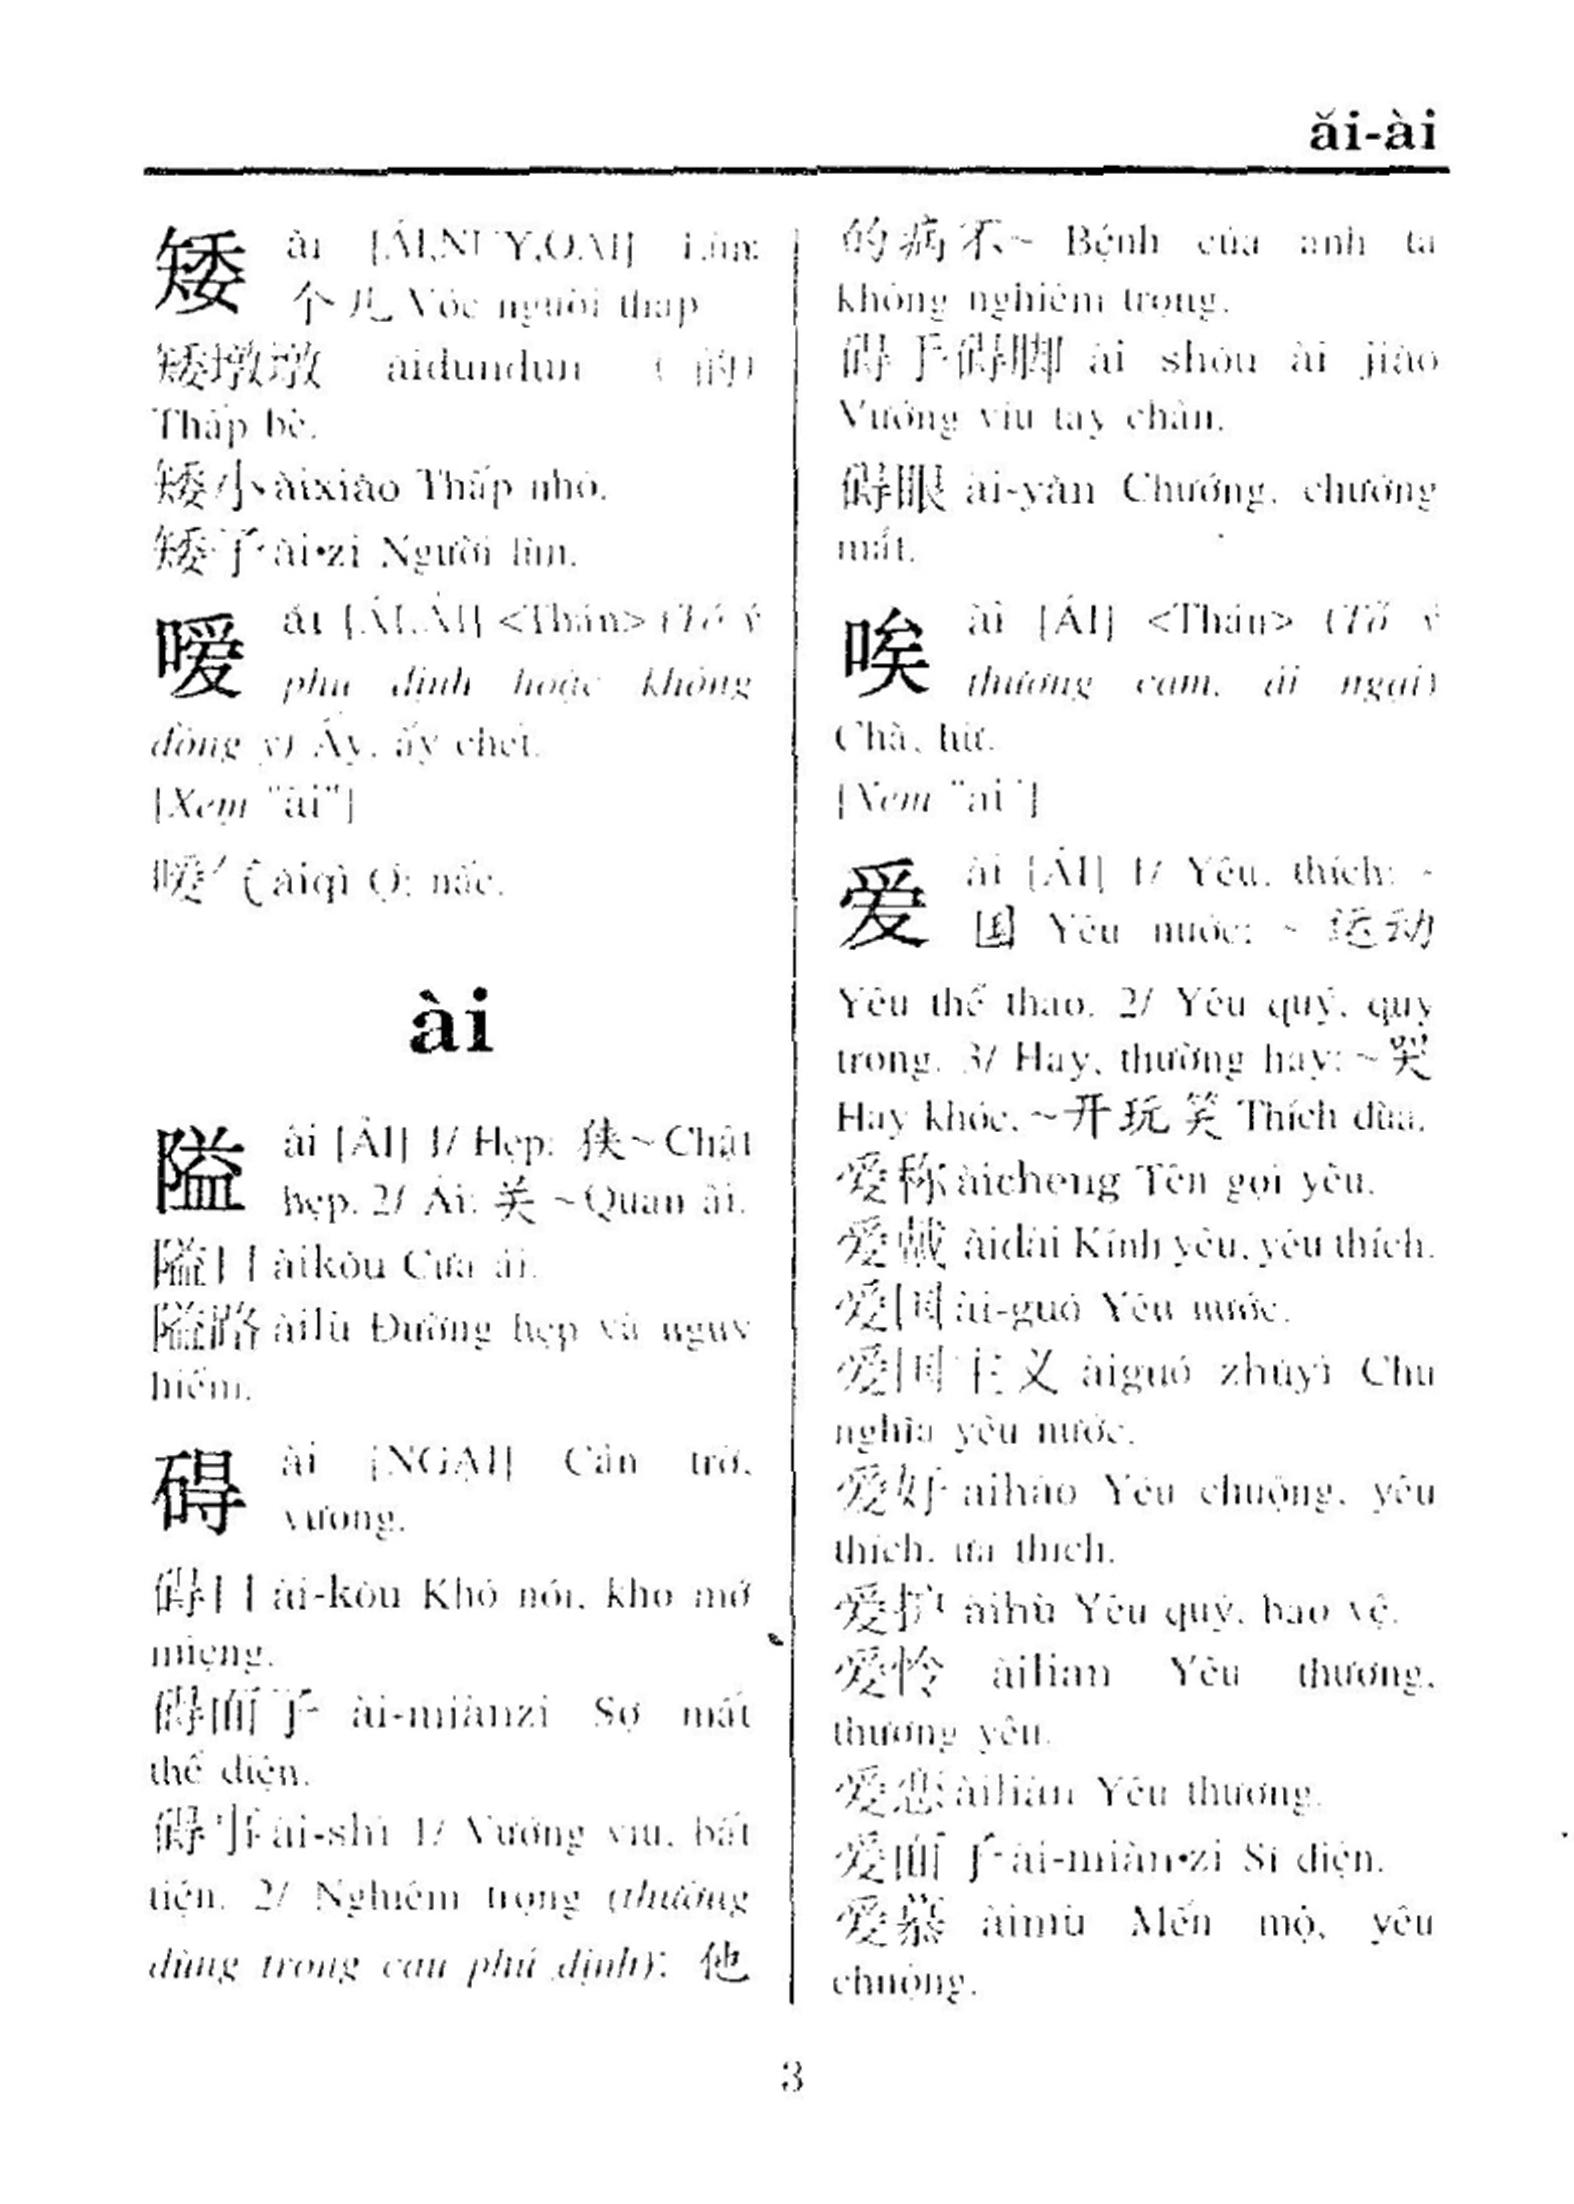 ǎi-ài
矮 ǎi [ẢI,NUY,OẢI] Lùn:
个儿 Vóc người thấp
矮墩墩 ǎidundun ( 的)
Thấp bè.
矮小 ǎixiǎo Thấp nhỏ.
矮子 ǎi•zi Người lùn.
嗳 ǎi [ÁI,ẢI] <Thán> (Tỏ ý
phủ định hoặc không
đồng ý) Ấy, ấy chết.
[Xem "ài"]
嗳气 ǎiqì Ợ; nấc.
ài
隘 ài [ẢI] 1/ Hẹp: 狭~ Chật
hẹp. 2/ Ải: 关 ~ Quan ải.
隘口 àikǒu Cửa ải.
隘路 àilù Đường hẹp và nguy
hiểm.
碍 ài [NGẠI] Cản trở,
vướng.
碍口 ài-kǒu Khó nói, khó mở
miệng.
碍面子 ài-miànzi Sợ mất
thể diện.
碍事 ài-shì 1/ Vướng víu, bất
tiện. 2/ Nghiêm trọng (thường
dùng trong câu phủ định): 他
的病不~ Bệnh của anh ta
không nghiêm trọng.
碍手碍脚 ài shǒu ài jiǎo
Vướng víu tay chân.
碍眼 ài-yǎn Chướng, chướng
mắt.
唉 ài [ÁI] <Thán> (Tỏ ý
thương cảm, ái ngại)
Chà, hừ.
[Xem "ai"]
爱 ài [ÁI] 1/ Yêu, thích: ~
国 Yêu nước; ~ 运动
Yêu thể thao. 2/ Yêu quý, quý
trọng. 3/ Hay, thường hay: ~哭
Hay khóc. ~开玩笑 Thích đùa.
爱称 àicheng Tên gọi yêu.
爱戴 àidài Kính yêu, yêu thích.
爱国 ài-guó Yêu nước.
爱国主义 àiguó zhǔyì Chủ
nghĩa yêu nước.
爱好 àihào Yêu chuộng, yêu
thích, ưa thích.
爱护 àihù Yêu quý, bảo vệ.
爱怜 àilian Yêu thương,
thương yêu.
爱恋 àiliàn Yêu thương.
爱面子 ài-miàn•zi Sĩ diện.
爱慕 àimù Mến mộ, yêu
chuộng.
3